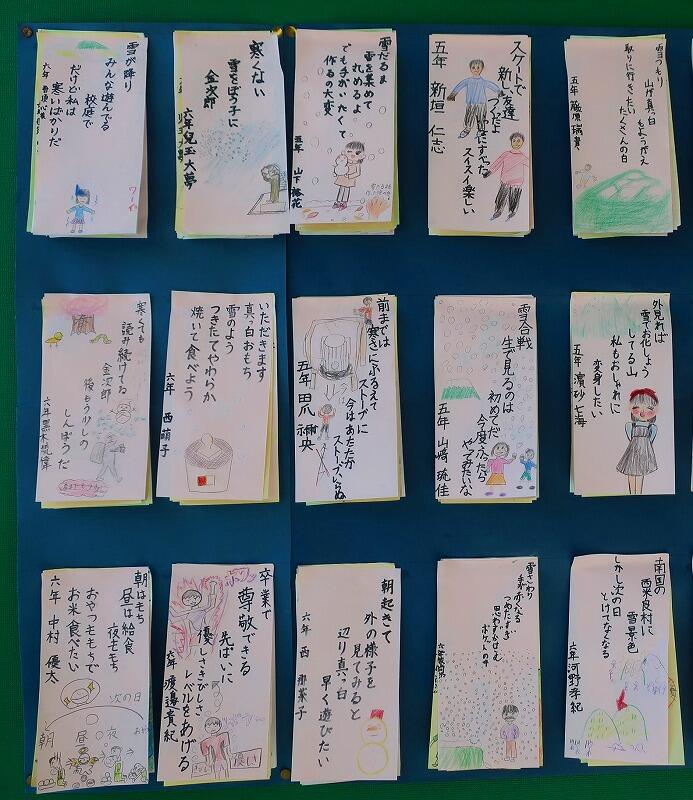 雪が降り
みんな遊んでる
校庭で
だけど私は
寒いばかりだ
六年
ワーイ
寒くない
雪をぼう子に
金次郎
六年 児玉 大夢
雪だるま
雪を集めて
丸めるよ
でも手がいたくて
作るの大変
五年 山下
スケートで
新しい友達
つくったよ
スイスイ楽しい
五年 新垣 仁志
雪つもり
山が真っ白
もようがえ
取りに行きたい
たくさんの白
五年 篠原 瑞貴
寒くても
読み続けてる
金次郎
後もう少しの
しんぼうだ
六年 黒木
いただきます
真っ白おもち
雪のよう
つきたてやわらか
焼いて食べよう
六年 西 萌子
前までは
寒さにふるえて
ストーブに
今はあたたか
ストーブいらぬ
五年 田爪
雪合戦
生で見るのは
初めてだ
今度ふったら
やってみたいな
五年 山崎 琉佳
外見れば
雪でお化しょう
してる山
私もおしゃれに
変身したい
五年 濵砂 七海
朝はもち
昼は給食
夜ももち
おやつももちで
お米食べたい
六年 中村 優太
次の日
朝
昼
夜
卒業で
尊敬できる
先ぱいに
優しさきびしさ
レベルをあげる
六年 渡邊 貴紀
優しさ
朝起きて
外の様子を
見てみると
辺り真っ白
早く遊びたい
六年 西 那菜子
雪さわり
手が赤くなる
つめたすぎ
思わずかけこえ
ポケットの中
南国の
西米良村に
雪景色
しかし次の日
とけてなくなる
六年 河野 孝紀